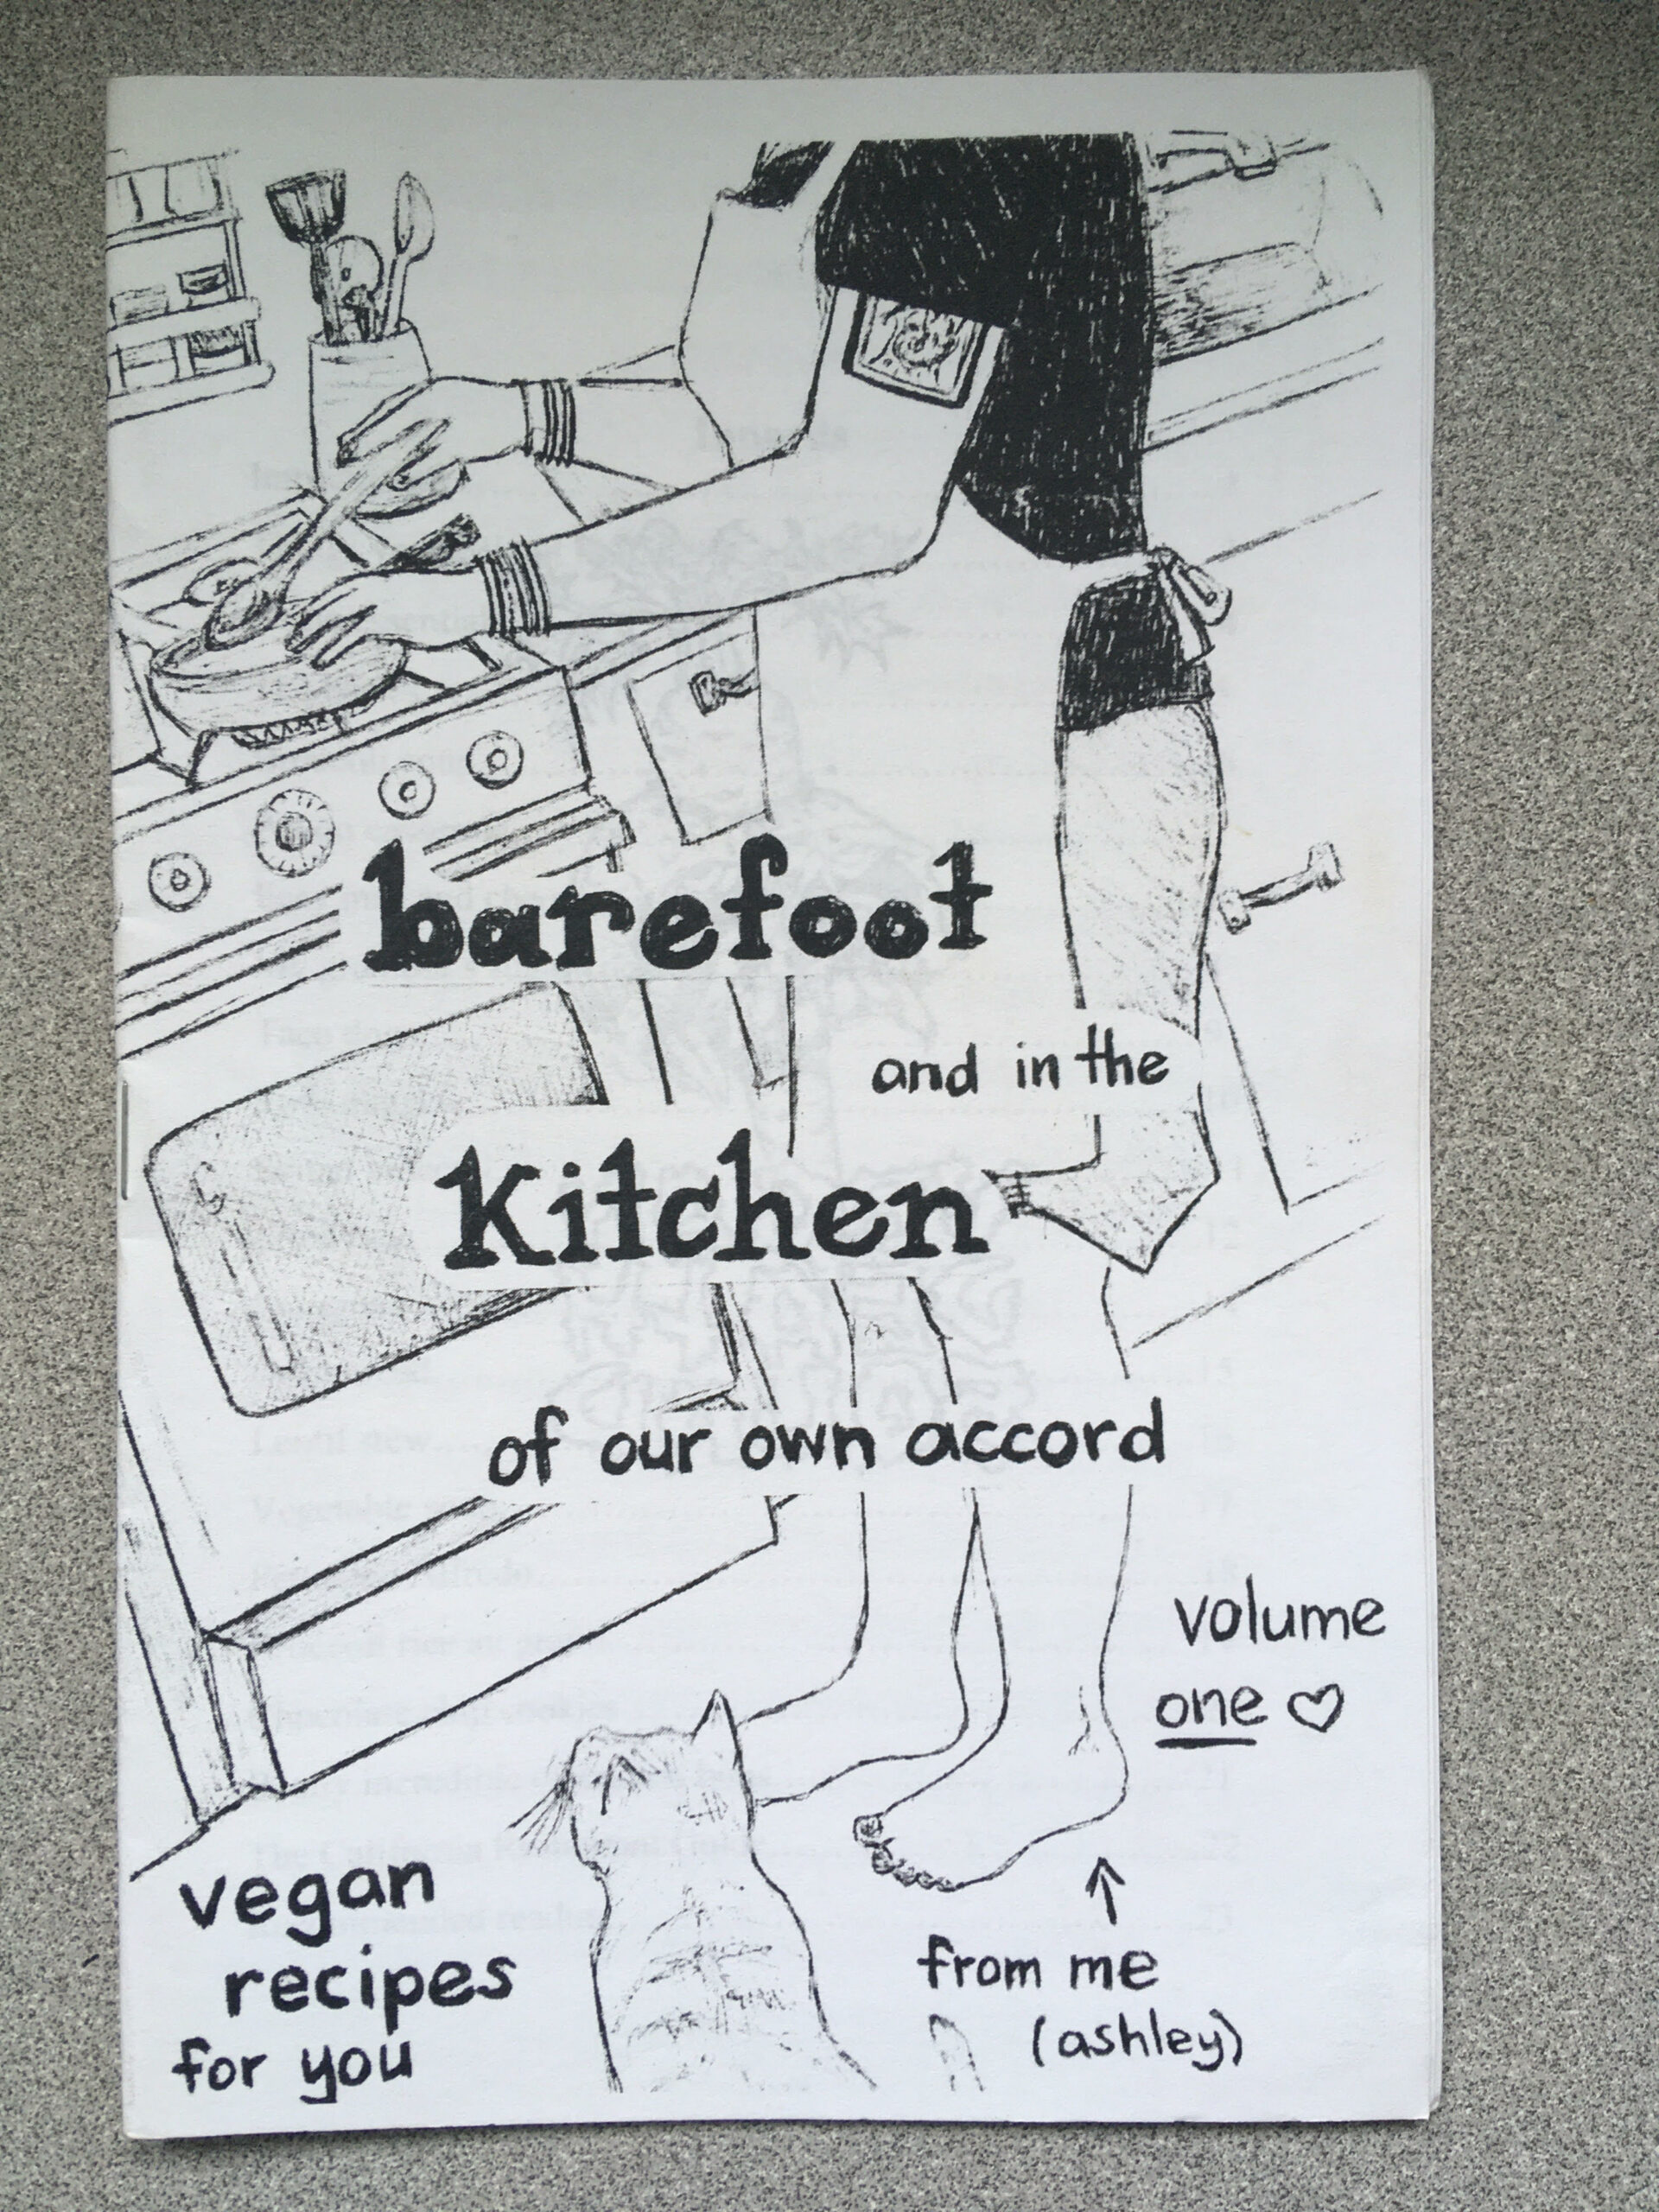 barefoot
and in the
kitchen
of our own accord
volume
one ♡
vegan
recipes
for you
from me
(ashley)